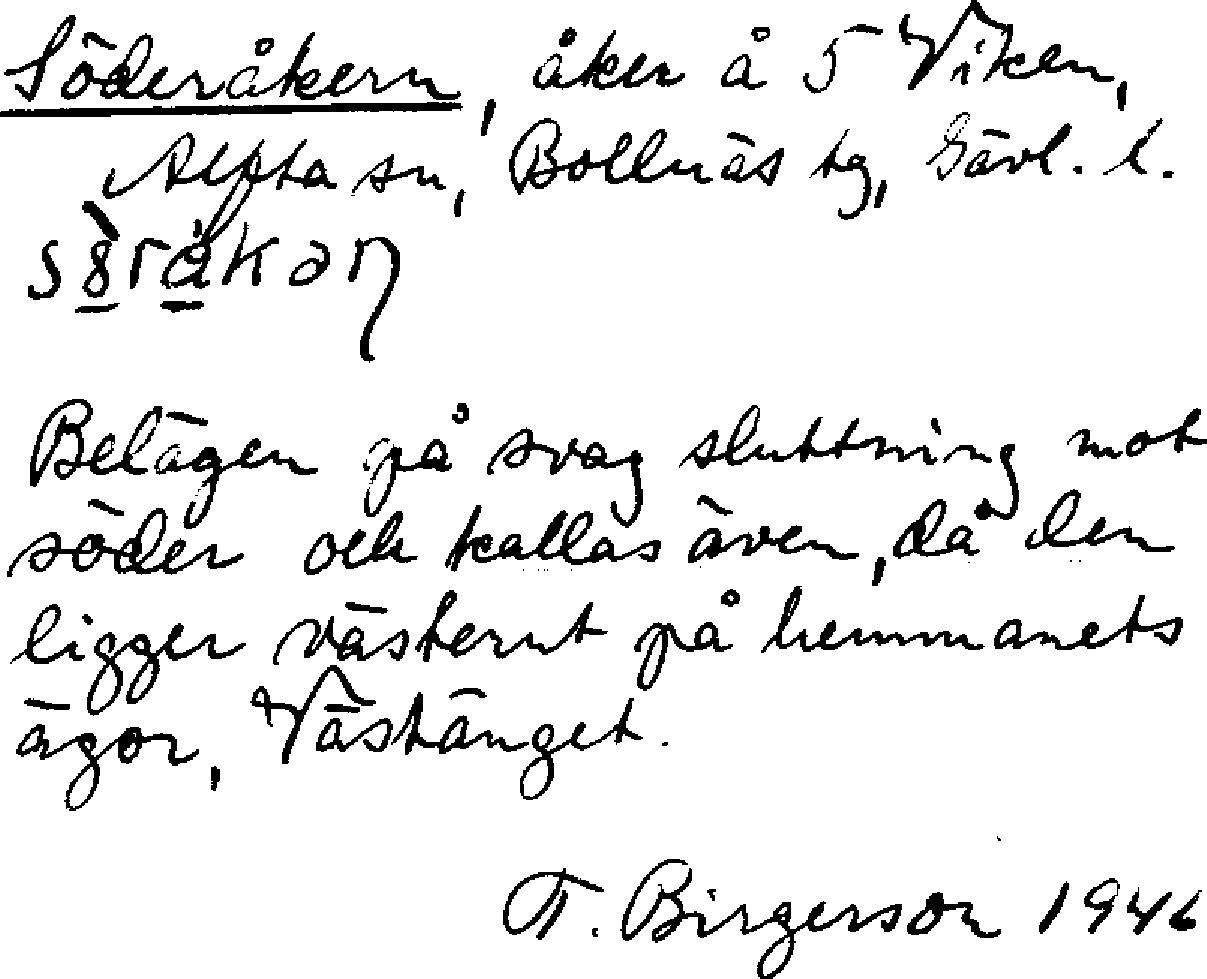 Söderåkern, åker å 5 Viken,
Alfta sn, Bollnäs tg, Gävl. l.
Belägen på svag sluttning mot
söder och kallas även, då den
ligger västerut på hemmanets
ägor, Västänget.
T. Birgerson 1946